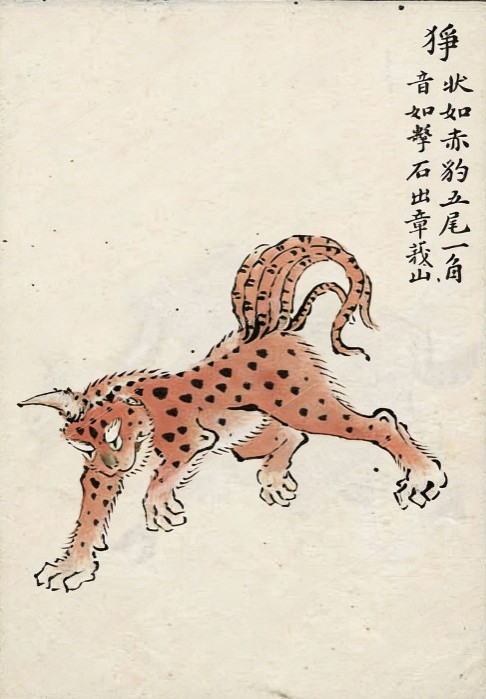 猙
状如赤豹五尾一角
音如擊石出章莪山